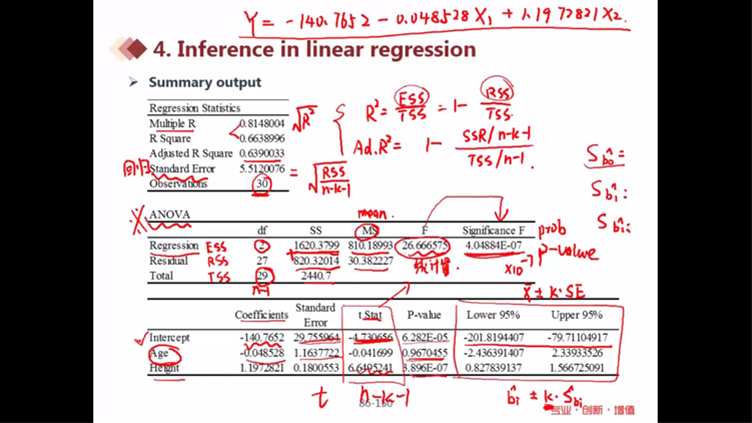 Y = -140.7652 - 0.048528 X₁ + 1.1972821 X₂.
4. Inference in linear regression
Summary output
Regression Statistics
Multiple R 0.8148004 √R²
R Square 0.6638996
Adjusted R Square 0.6390033
回归 Standard Error 5.5120076 = √RSS/n-k-1
Observations 30
R² = ESS/TSS = 1 - RSS/TSS
Ad.R² = 1 - SSR/n-k-1 / TSS/n-1.
S b̂₀ =
S b̂₁ :
S b̂ᵢ :
※ ANOVA
mean.
df SS MS F Significance F prob
Regression ESS 2 1620.3799 810.18993 26.666575 4.04884E-07 P-value
Residual RSS 27 820.32014 30.382227 统计量. ×10⁻⁷
Total TSS 29 2440.7
n-1
X̄ ± k·SE
Coefficients Standard Error t Stat P-value Lower 95% Upper 95%
Intercept -140.7652 29.755964 -4.730656 6.282E-05 -201.8194407 -79.71104917
Age -0.048528 1.1637722 -0.041699 0.9670455 -2.436391407 2.33933526
Height 1.1972821 0.1800553 6.6495241 3.896E-07 0.827839137 1.566725091
t n-k-1 b̂ᵢ ± k·S b̂ᵢ
专业·创新·增值